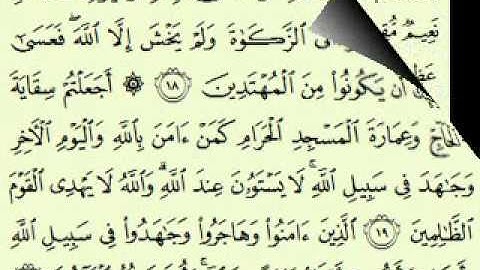 نَعِيمٌ مُّقِ
ى ٱلزَّكَوٰةَ وَلَمْ يَخْشَ إِلَّا ٱللَّهَ ۖ فَعَسَىٰٓ
أَن يَكُونُوا۟ مِنَ ٱلْمُهْتَدِينَ ١٨ ۞ أَجَعَلْتُمْ سِقَايَةَ
ٱلْحَآجِّ وَعِمَارَةَ ٱلْمَسْجِدِ ٱلْحَرَامِ كَمَنْ ءَامَنَ بِٱللَّهِ وَٱلْيَوْمِ ٱلْءَاخِرِ
وَجَٰهَدَ فِى سَبِيلِ ٱللَّهِ ۚ لَا يَسْتَوُۥنَ عِندَ ٱللَّهِ ۗ وَٱللَّهُ لَا يَهْدِى ٱلْقَوْمَ
ٱلظَّٰلِمِينَ ١٩ ٱلَّذِينَ ءَامَنُوا۟ وَهَاجَرُوا۟ وَجَٰهَدُوا۟ فِى سَبِيلِ ٱللَّهِ